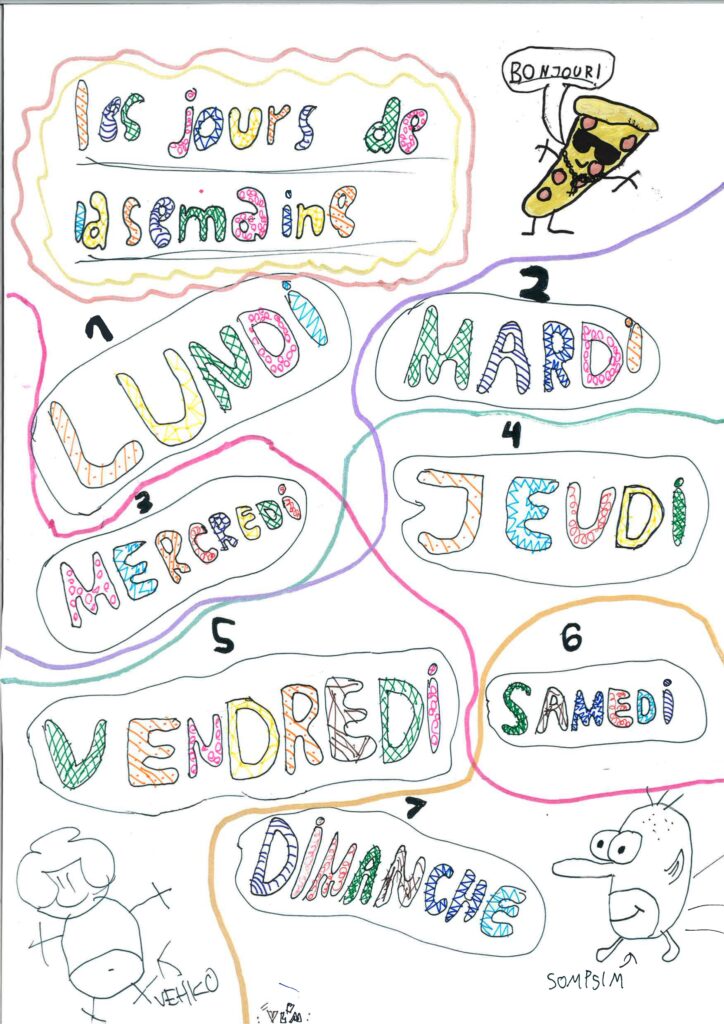 les jours de
la semaine
BONJOUR!
1
LUNDi
2
MARDi
3
MERCREDi
4
JEUDi
5
VENDREDi
6
SAMEDi
7
DiMANCHE
VEHKO
SOMPSIM